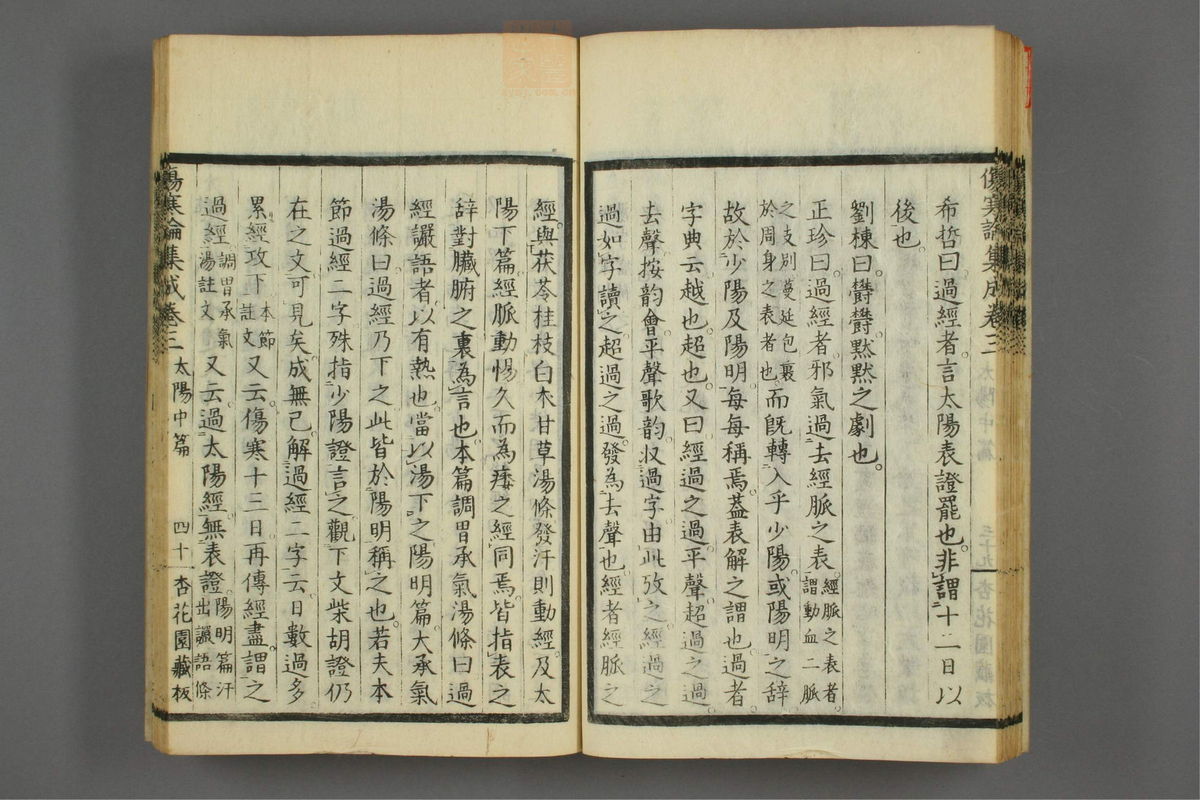 希哲曰過經者言太陽表證罷也非謂十二日以
後也
劉棟曰欝欝黙黙之劇也
正珍曰過經者邪氣過去經脈之表經脈之表者謂動血二脈
之支別蔓延包裹於周身之表者也而既轉入乎少陽或陽明之辞
故於少陽及陽明每每稱焉蓋表解之謂也過者
字典云越也超也又曰經過之過平聲超過之過
去聲按韵會平聲歌韵収過字由此攷之經過之
過如字讀之超過之過發為去聲也經者經脈之
傷寒論集成卷三
太陽中篇
三十九
杏花園藏板
經與茯苓桂枝白木甘草湯條發汗則動經及太
陽下篇經脈動惕久而為痿之經同焉皆指表之
辞對臟腑之裏為言也本篇調胃承氣湯條曰過
經讝語者以有熱也當以湯下之陽明篇大承氣
湯條曰過經乃下之此皆於陽明稱之也若夫本
節過經二字殊指少陽證言之觀下文柴胡證仍
在之文可見矣成無己解過經二字云日數過多
累經攻下本節註文又云傷寒十三日再傳經盡謂之
過經調胃承氣湯註文又云過太陽經無表證陽明篇汗出讝語條
傷寒論集成卷三
太陽中篇
四十
杏花園藏板